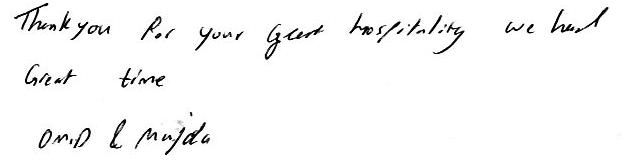 Thank you for your Great hospitality we had
Great time
OMID & Majda